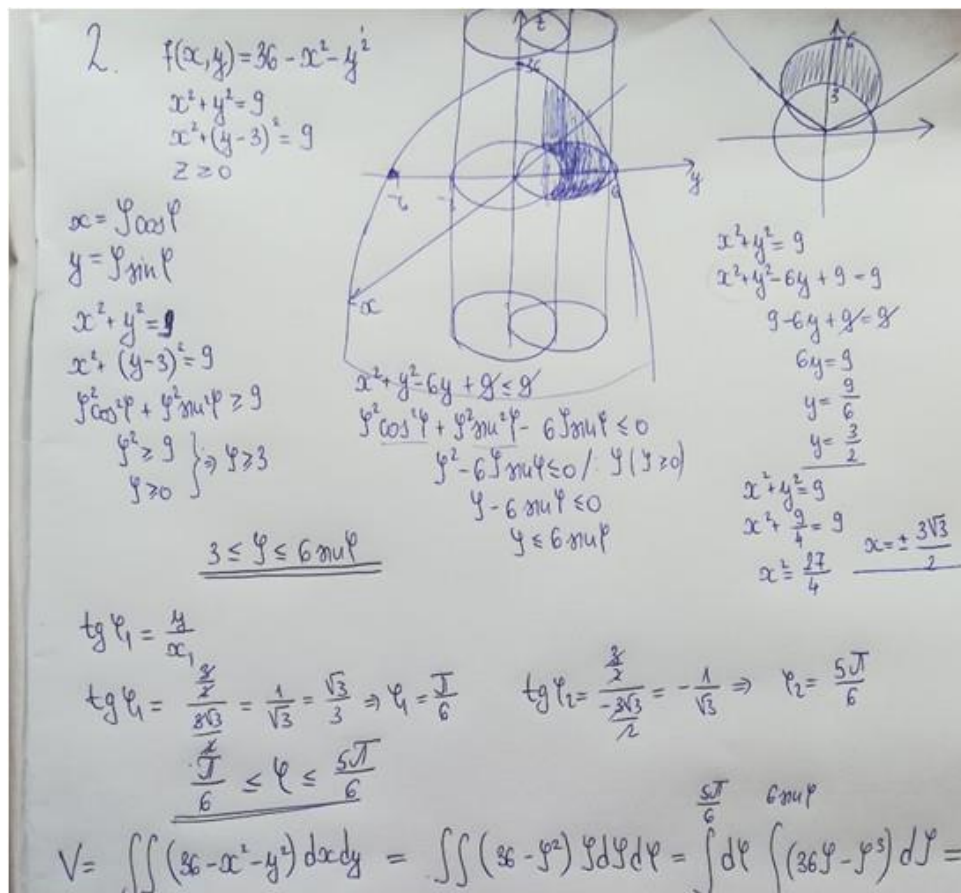 2. f(x,y) = 36 - x² - y²
x² + y² = 9
x² + (y-3)² = 9
z ≥ 0
x = ρcosφ
y = ρsinφ
x² + y² = 9
x² + (y-3)² = 9
ρ²cos²φ + ρ²sin²φ ≥ 9
ρ² ≥ 9
ρ ≥ 0 } ⇒ ρ ≥ 3
3 ≤ ρ ≤ 6sinφ
z
36
-6
-3
6
y
x
x² + y² - 6y + 9 ≤ 9
ρ²cos²φ + ρ²sin²φ - 6ρsinφ ≤ 0
ρ² - 6ρsinφ ≤ 0 /: ρ (ρ ≥ 0)
ρ - 6sinφ ≤ 0
ρ ≤ 6sinφ
6
3
x² + y² = 9
x² + y² - 6y + 9 = 9
9 - 6y + 9 = 9
6y = 9
y = 9/6
y = 3/2
x² + y² = 9
x² + 9/4 = 9
x² = 27/4 x = ± 3√3/2
tg φ₁ = y/x₁
tg φ₁ = (3/2)/(3√3/2) = 1/√3 = √3/3 ⇒ φ₁ = π/6 tg φ₂ = (3/2)/(-3√3/2) = -1/√3 ⇒ φ₂ = 5π/6
π/6 ≤ φ ≤ 5π/6
5π/6 6sinφ
V = ∬(36 - x² - y²) dxdy = ∬(36 - ρ²) ρdρdφ = ∫dφ ∫(36ρ - ρ³) dρ =